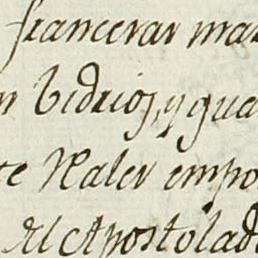 francerar mar
n bidrios, y gua
te Valer empo
el Apostolad